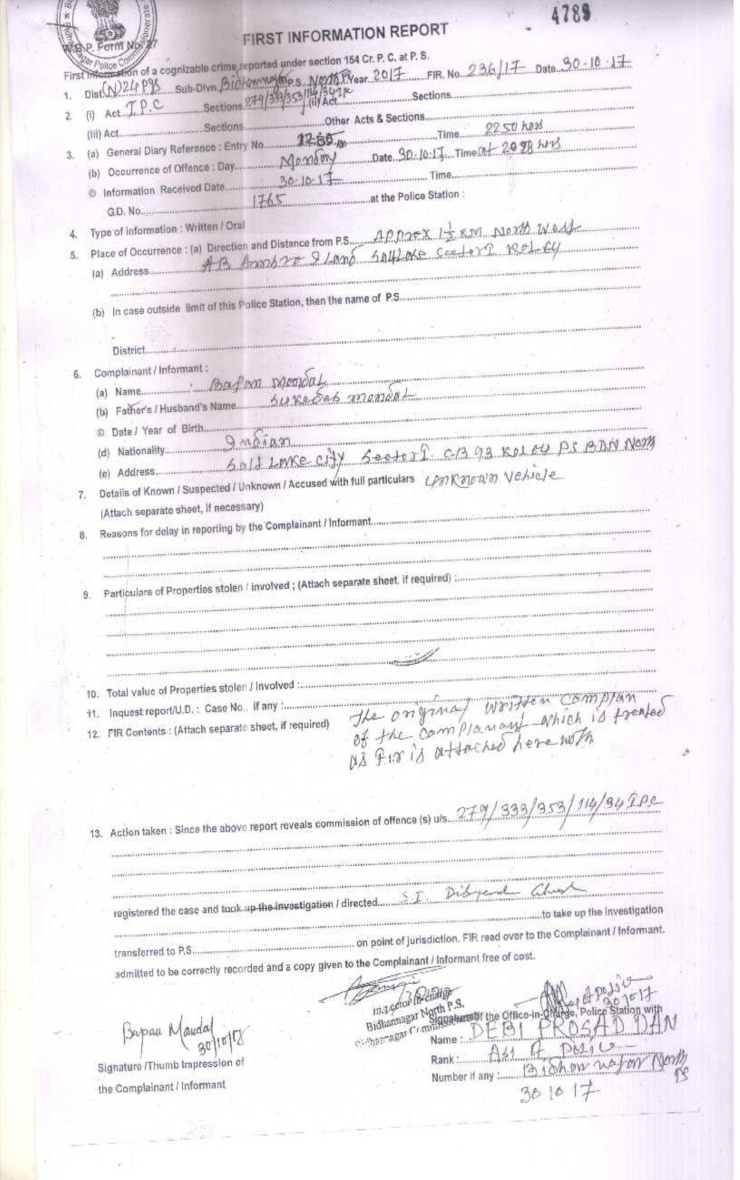 4789
FIRST INFORMATION REPORT
W.B.P. Form No. 27
First Information of a cognizable crime reported under section 154 Cr. P. C. at P. S.
1. Dist (N) 24 PGS Sub-Divn. Bidhannagar P.S. North PS Year 2017 FIR. No. 236/17 Date 30-10-17
2. (i) Act I.P.C Sections 279/333/353/114/34 IPC (ii) Act Sections
(iii) Act Sections Other Acts & Sections
3. (a) General Diary Reference : Entry No. Time 2250 hrs
(b) Occurrence of Offence : Day Monday Date 30-10-17 Time at
© Information Received Date 30-10-17 Time
G.D. No. 1765 at the Police Station :
4. Type of information : Written / Oral
5. Place of Occurrence : (a) Direction and Distance from P.S. Approx 1½ KM North West
(a) Address AB Island Salt Lake Sector I KOL 64
(b) In case outside limit of this Police Station, then the name of P.S.
District
6. Complainant / Informant :
(a) Name Bapan Mondal
(b) Father's / Husband's Name Sukdeb Mondal
© Date / Year of Birth
(d) Nationality Indian
(e) Address Salt Lake City Sector I. CB 93 KOL 64 PS BDN North
7. Details of Known / Suspected / Unknown / Accused with full particulars Unknown Vehicle
(Attach separate sheet, if necessary)
8. Reasons for delay in reporting by the Complainant / Informant
9. Particulars of Properties stolen / involved ; (Attach separate sheet, if required) :
10. Total value of Properties stolen / Involved :
11. Inquest report/U.D. : Case No., if any :
12. FIR Contents : (Attach separate sheet, if required)
The original written complan
of the complanant which is treated
as FIR is attached here with
13. Action taken : Since the above report reveals commission of offence (s) u/s. 279/333/353/114/34 I.P.C
registered the case and took up the investigation / directed S.I. Dibyendu Ghosh
to take up the investigation
transferred to P.S. on point of jurisdiction. FIR read over to the Complainant / Informant.
admitted to be correctly recorded and a copy given to the Complainant / Informant free of cost.
Inspector In-Charge
Bidhannagar North P.S.
Bidhannagar Commissionerate
30/10/17
Signature of the Office-in-Charge, Police Station with
Name : DEBI PROSAD DAN
Rank : ASI of Police
Number if any : Bidhannagar North PS
30 10 17
Bapan Mandal
30/10/17
Signature /Thumb Impression of
the Complainant / Informant